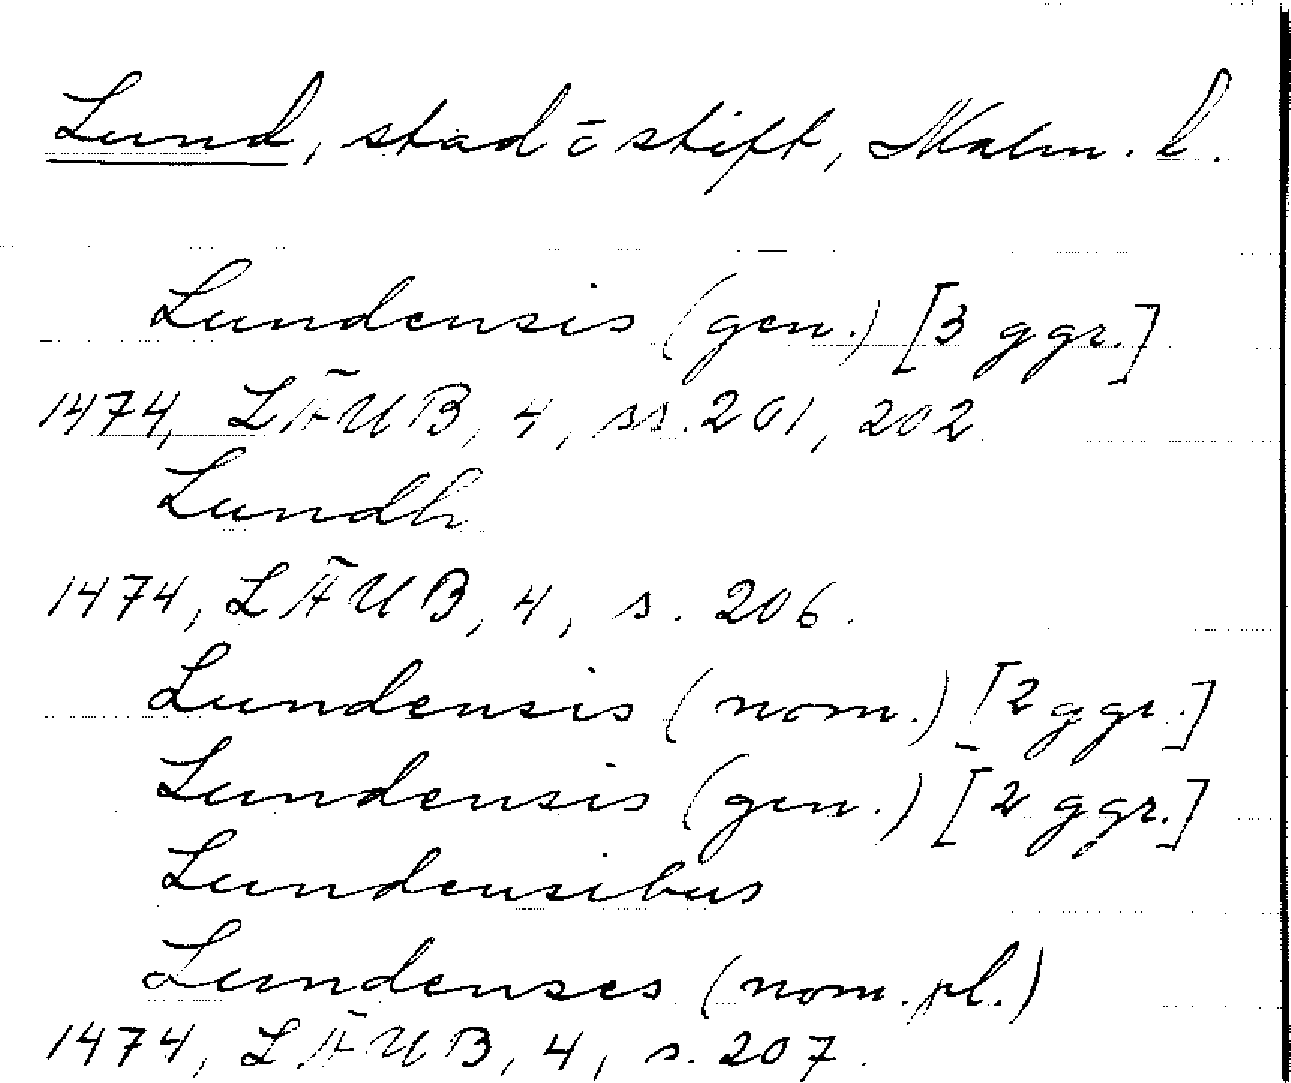 Lund, stad o stift, Malm. l.
Lundensis (gen.) [3 ggr.]
1474, LÄUB, 4, ss. 201, 202
Lundh
1474, LÄUB, 4, s. 206.
Lundensis (nom.) [2 ggr.]
Lundensis (gen.) [2 ggr.]
Lundensibus
Lundenses (nom. pl.)
1474, LÄUB, 4, s. 207.